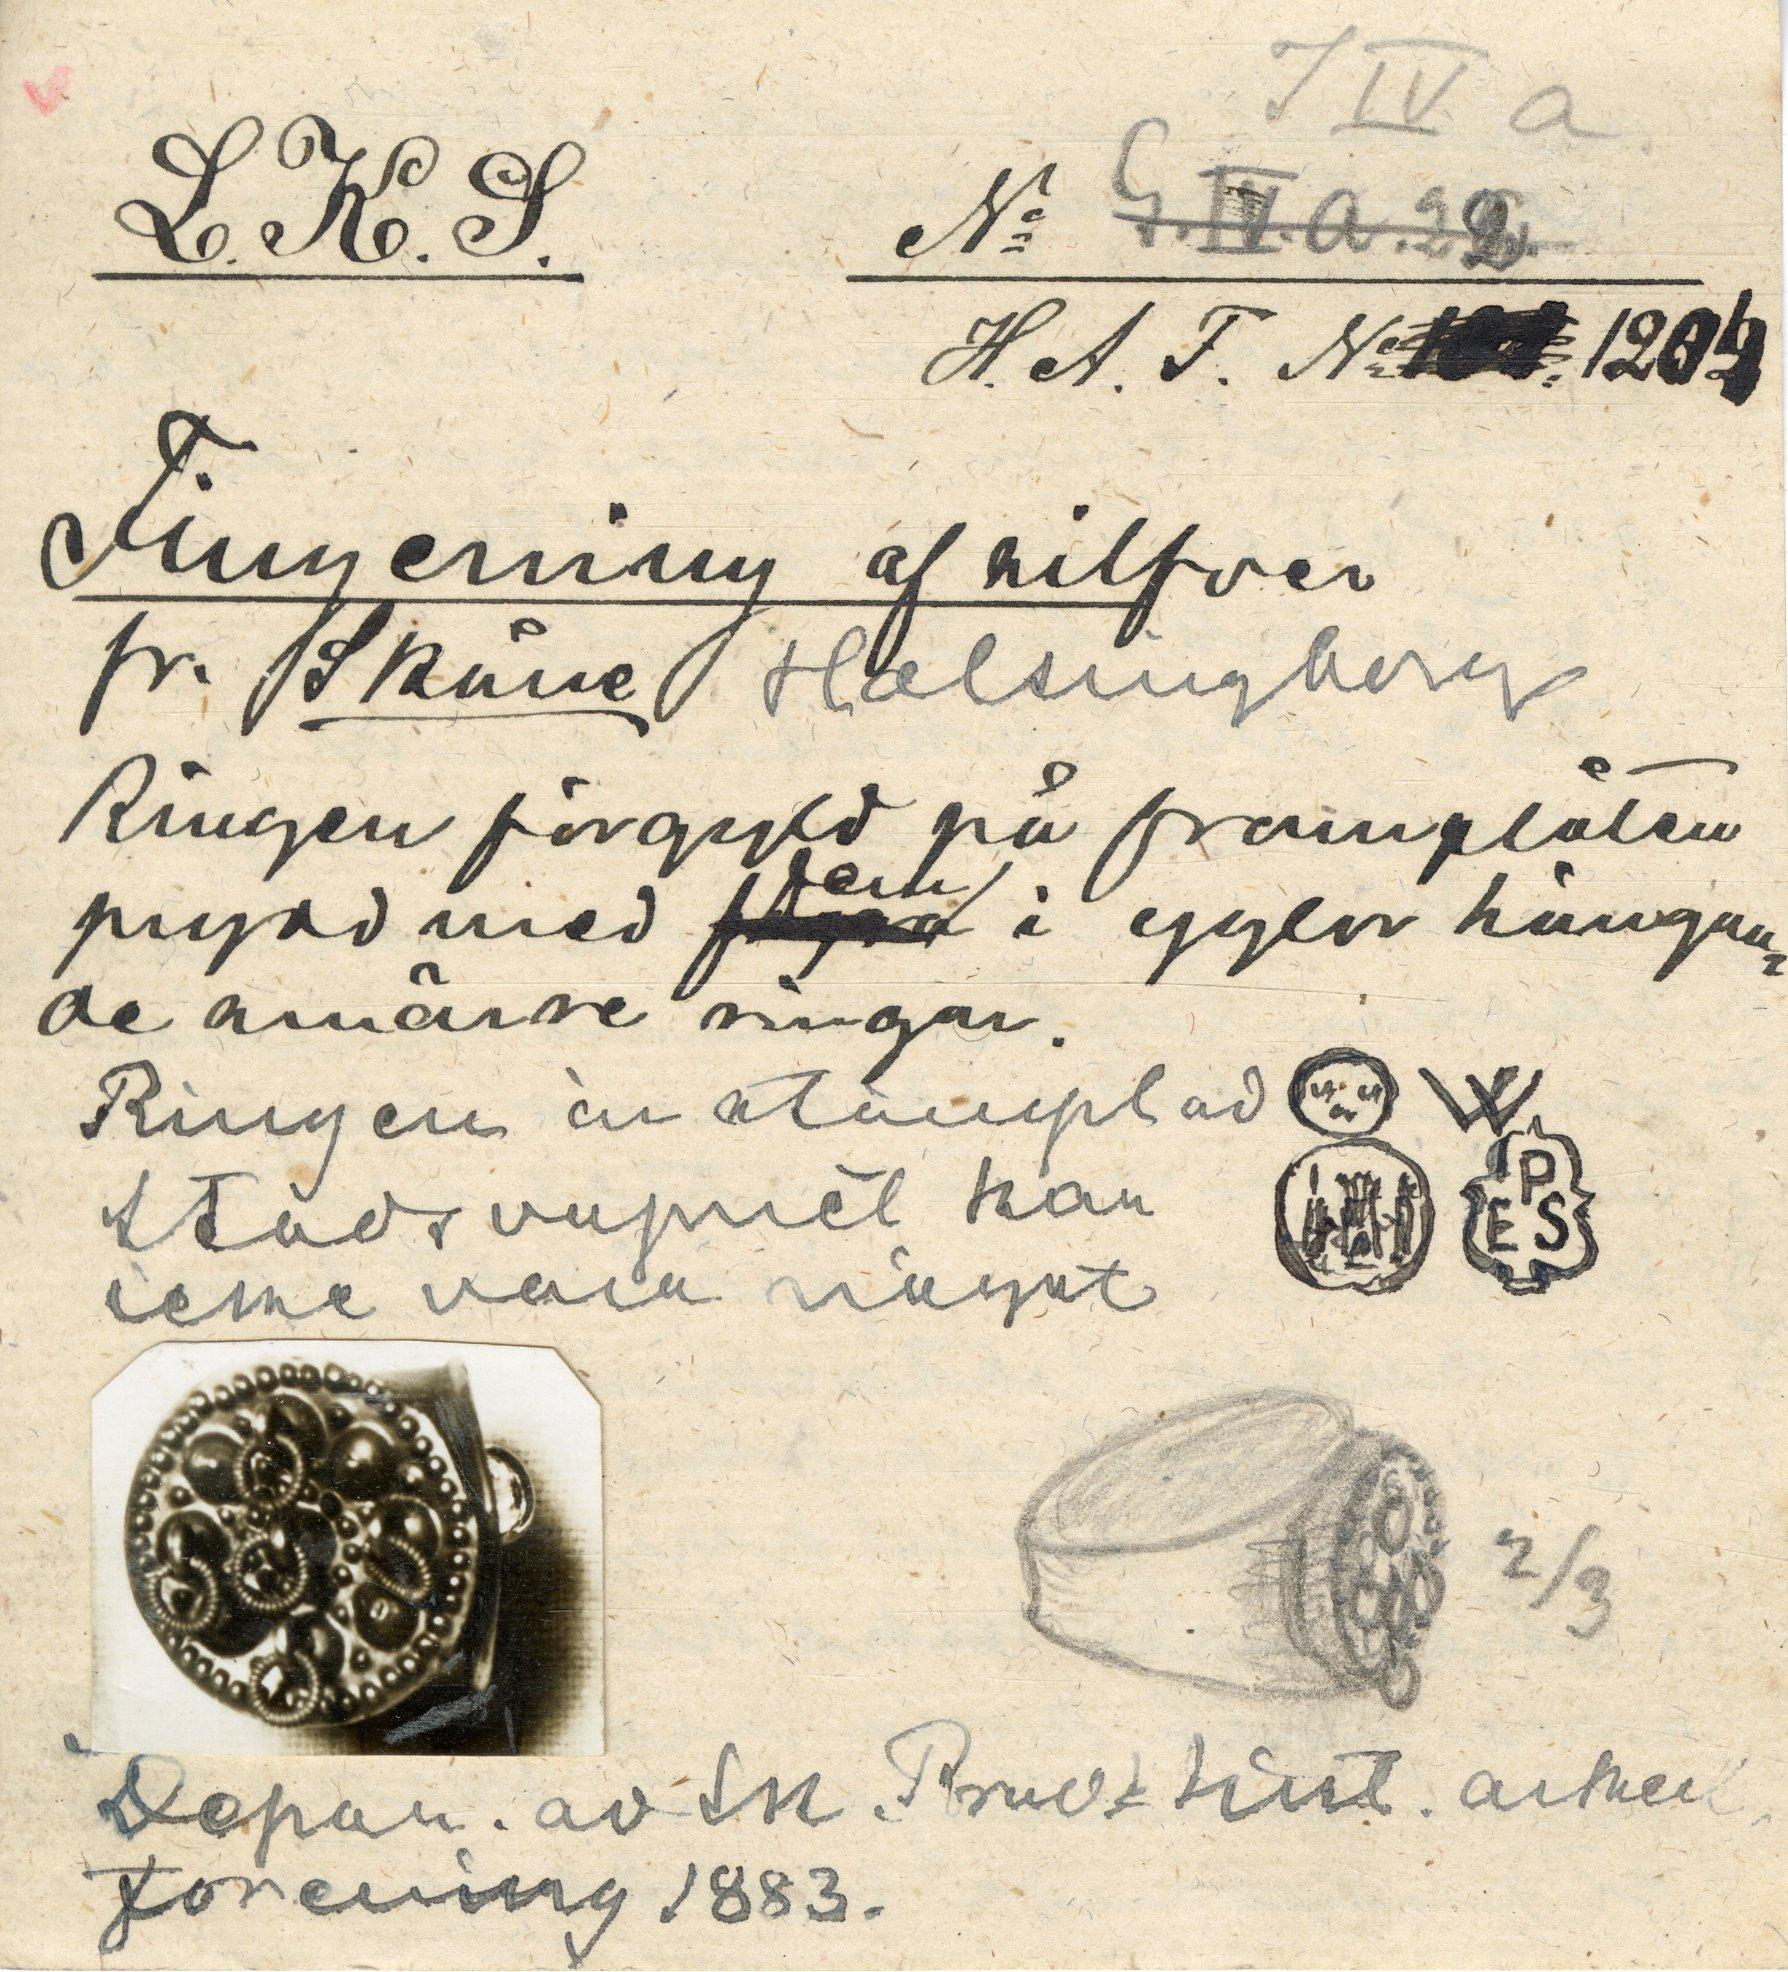 I IV a
L.K.S.
No G.IV.a.22.
H.A.F. No 1204
Fingerring af silfver
fr. Skåne Helsingborg
Ringen förgyld på framplåten
prydd med fem i öglor hängan-
de smärre ringar.
Ringen är stämplad W.
Stadsvapnet kan
icke vara något
P
E S
2/3
Depon. av Sk. Prov. hist. arkeol.
förening 1883.